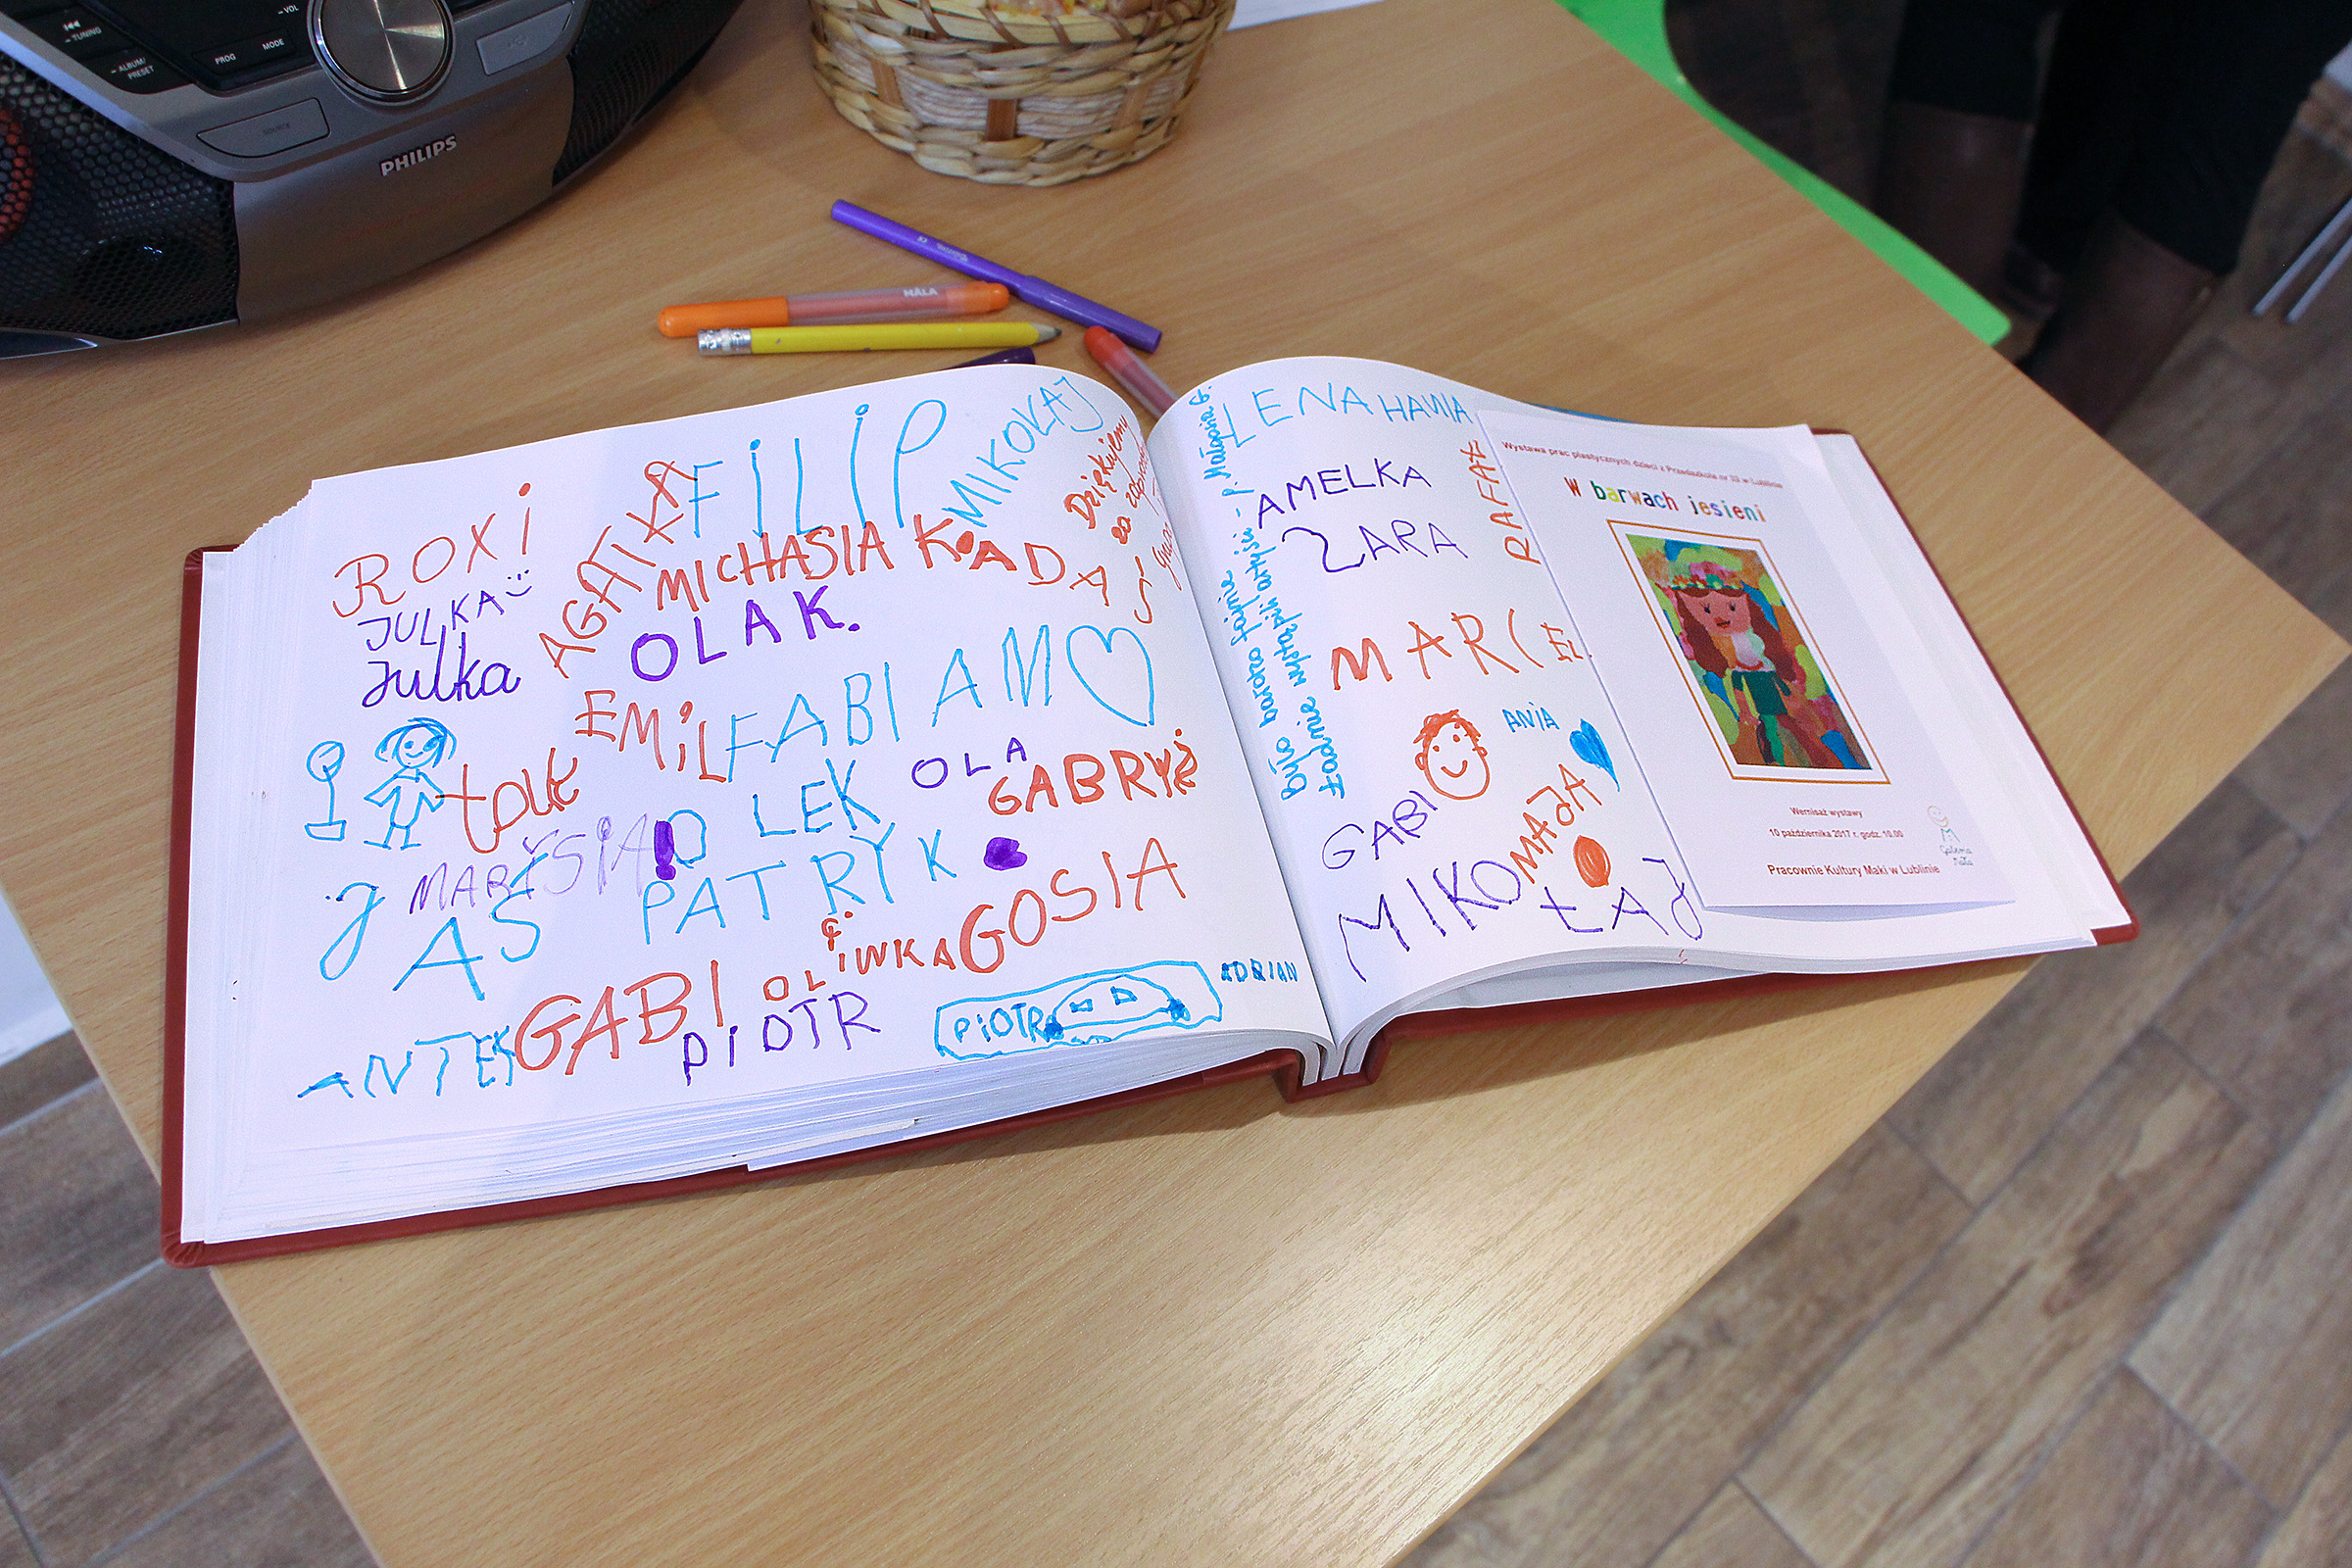 TUNING
ALBUM/
PRESET
VOL
PROG
MODE
SOURCE
PHILIPS
ROXi
JULKA
Julka
AGATKA
FiLiP
MIKOŁAJ
MICHASIA
KADA
OLA K.
Dziękujemy
za
EMiL
FABIAN
OLA
GABRYŚ
OLEK
MARYSIA
JAŚ
PATRYK
OLIWKA
GOSIA
GABI
PiOTR
ANTEK
PiOTR
ADRIAN
Było bardzo fajnie
Ładnie wystąpili artyści - p. Małgosia G.
LENA
HANIA
AMELKA
ZARA
RAFAŁ
MARCEL
ANIA
GABI
MAJA
MIKOŁAJ
Wystawa prac plastycznych dzieci z Przedszkola nr 33 w Lublinie
W barwach jesieni
Wernisaż wystawy
10 października 2017 r. godz. 10.00
Pracownie Kultury Maki w Lublinie